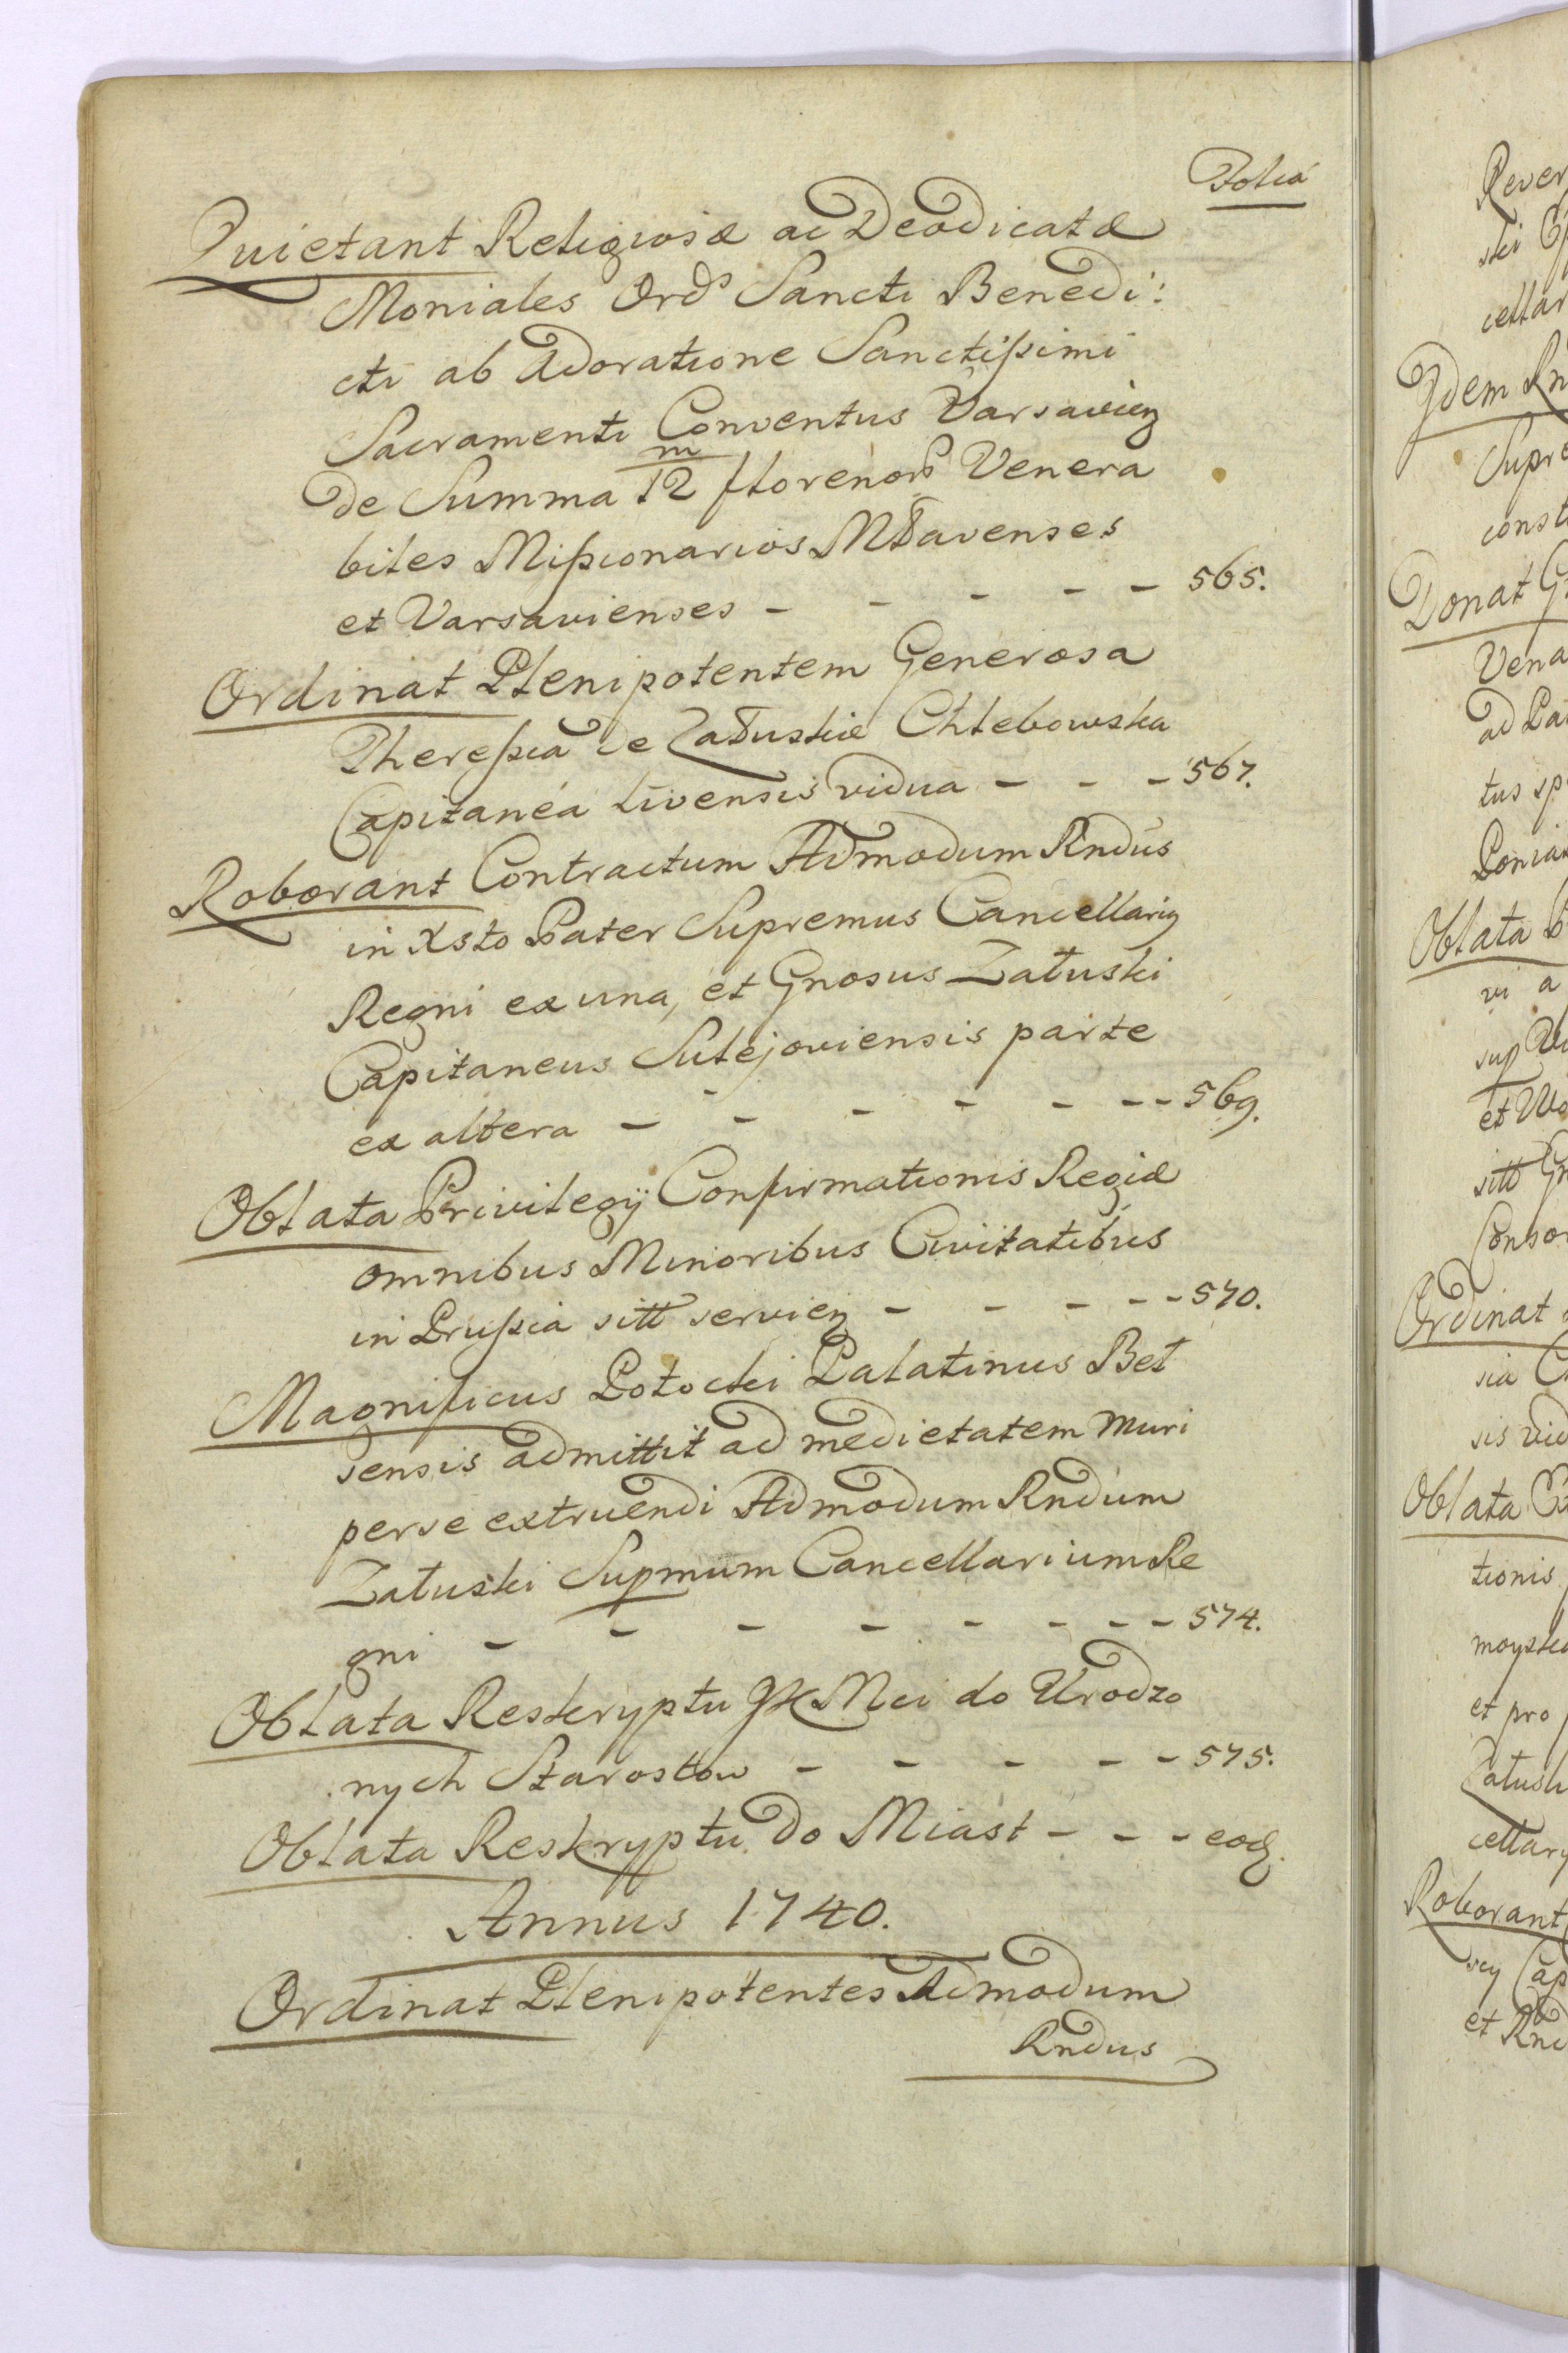 Folia
Quietant Religiosæ ac Deodicatæ
Moniales Ord̃s Sancti Benedi:
cti ab Adoratione Sanctissimi
Sacramenti Conventus Varsavien̄
de Summa 12 m florenor̃ Venera
biles Missionarios Mławenses
et Varsavienses - - - - - 565.
Ordinat Plenipotentem Generosa
Theressia de Załuskie Chlebowska
Capitanea Livensis vidua - - - 567.
Roborant Contractum Admodum Rndus
in Xsto Pater Supremus Cancellariꝰ
Regni ex una, et Gnosus Załuski
Capitaneus Sulejoviensis parte
ex altera - - - - - - - 569.
Oblata Privilegij Confirmationis Regiæ
omnibus Minoribus Civitatibus
in Prussia sitt servien̄ - - - - - 570.
Magnificus Potocki Palatinus Bel
sensis admittit ad medietatem muri
per se extruendi Admodum Rndum
Załuski Supmum Cancellarium Re
gni - - - - - - - - 574.
Oblata Reskryptu JK Mci do Urodzo
nych Starostow - - - - - 575.
Oblata Reskryptu do Miast - - - eod.
Annus 1740.
Ordinat Plenipotentes Admodum
Rndus
Rever
ski
cellar
Idem Rn
Supre
const
Donat G
Vena
ad Pa
tus sp
Ponia
Oblata
vi a
sup
et Wo
sitt Gn
Conso
Ordinat
sia C
sis vid
Oblata
tionis
moyski
et pro
Załusk
cellary
Roborant
Cap
et Rnd